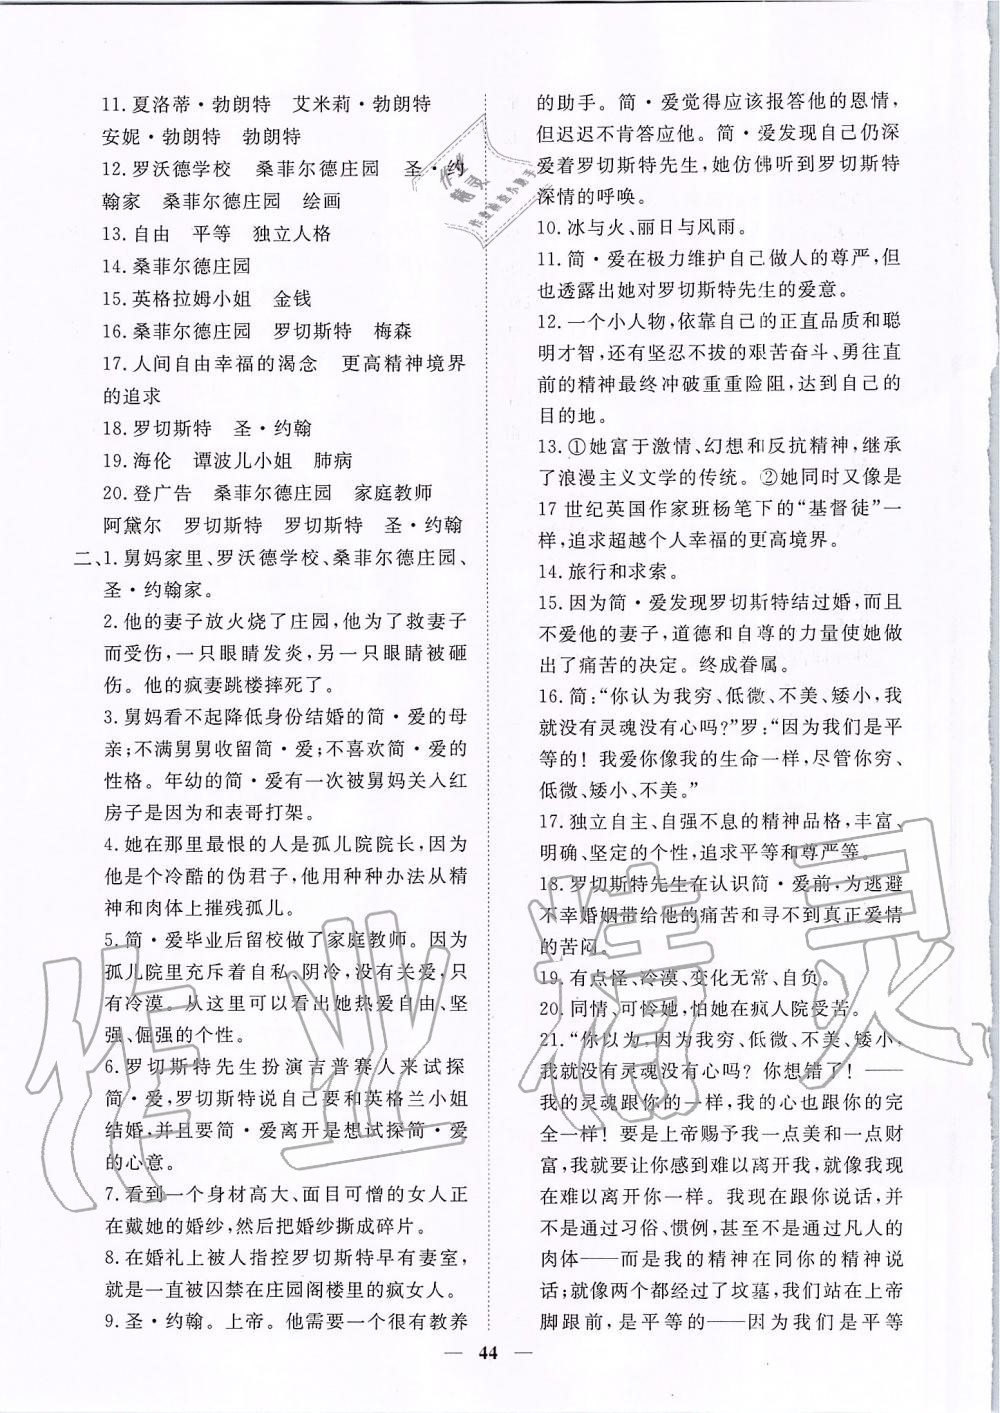 11. 夏洛蒂·勃朗特　艾米莉·勃朗特
安妮·勃朗特　勃朗特
12. 罗沃德学校　桑菲尔德庄园　圣·约
翰家　桑菲尔德庄园　绘画
13. 自由　平等　独立人格
14. 桑菲尔德庄园
15. 英格拉姆小姐　金钱
16. 桑菲尔德庄园　罗切斯特　梅森
17. 人间自由幸福的渴念　更高精神境界
的追求
18. 罗切斯特　圣·约翰
19. 海伦　谭波儿小姐　肺病
20. 登广告　桑菲尔德庄园　家庭教师
阿黛尔　罗切斯特　罗切斯特　圣·约翰
二、1. 舅妈家里、罗沃德学校、桑菲尔德庄园、
圣·约翰家。
2. 他的妻子放火烧了庄园，他为了救妻子
而受伤，一只眼睛发炎，另一只眼睛被砸
伤。他的疯妻跳楼摔死了。
3. 舅妈看不起降低身份结婚的简·爱的母
亲；不满舅舅收留简·爱；不喜欢简·爱的
性格。年幼的简·爱有一次被舅妈关入红
房子是因为和表哥打架。
4. 她在那里最恨的人是孤儿院院长，因为
他是个冷酷的伪君子，他用种种办法从精
神和肉体上摧残孤儿。
5. 简·爱毕业后留校做了家庭教师。因为
孤儿院里充斥着自私、阴冷，没有关爱，只
有冷漠。从这里可以看出她热爱自由、坚
强、倔强的个性。
6. 罗切斯特先生扮演吉普赛人来试探
简·爱，罗切斯特说自己要和英格兰小姐
结婚，并且要简·爱离开是想试探简·爱
的心意。
7. 看到一个身材高大、面目可憎的女人正
在戴她的婚纱，然后把婚纱撕成碎片。
8. 在婚礼上被人指控罗切斯特早有妻室，
就是一直被囚禁在庄园阁楼里的疯女人。
9. 圣·约翰。上帝。他需要一个很有教养
的助手。简·爱觉得应该报答他的恩情，
但迟迟不肯答应他。简·爱发现自己仍深
爱着罗切斯特先生，她仿佛听到罗切斯特
深情的呼唤。
10. 冰与火、丽日与风雨。
11. 简·爱在极力维护自己做人的尊严，但
也透露出她对罗切斯特先生的爱意。
12. 一个小人物，依靠自己的正直品质和聪
明才智，还有坚忍不拔的艰苦奋斗、勇往直
前的精神最终冲破重重险阻，达到自己的
目的地。
13. ①她富于激情、幻想和反抗精神，继承
了浪漫主义文学的传统。②她同时又像是
17 世纪英国作家班杨笔下的“基督徒”一
样，追求超越个人幸福的更高境界。
14. 旅行和求索。
15. 因为简·爱发现罗切斯特结过婚，而且
不爱他的妻子，道德和自尊的力量使她做
出了痛苦的决定。终成眷属。
16. 简：“你认为我穷、低微、不美、矮小，我
就没有灵魂没有心吗？”罗：“因为我们是平
等的！我爱你像我的生命一样，尽管你穷、
低微、矮小、不美。”
17. 独立自主、自强不息的精神品格，丰富、
明确、坚定的个性，追求平等和尊严等。
18. 罗切斯特先生在认识简·爱前，为逃避
不幸婚姻带给他的痛苦和寻不到真正爱情
的苦闷。
19. 有点怪、冷漠、变化无常、自负。
20. 同情、可怜她，怕她在疯人院受苦。
21. “你以为，因为我穷、低微、不美、矮小，
我就没有灵魂没有心吗？你想错了！——
我的灵魂跟你的一样，我的心也跟你的完
全一样！要是上帝赐予我一点美和一点财
富，我就要让你感到难以离开我，就像我现
在难以离开你一样。我现在跟你说话，并
不是通过习俗、惯例，甚至不是通过凡人的
肉体——而是我的精神在同你的精神说
话；就像两个都经过了坟墓，我们站在上帝
脚跟前，是平等的——因为我们是平等
— 44 —
作业精灵
作业精灵